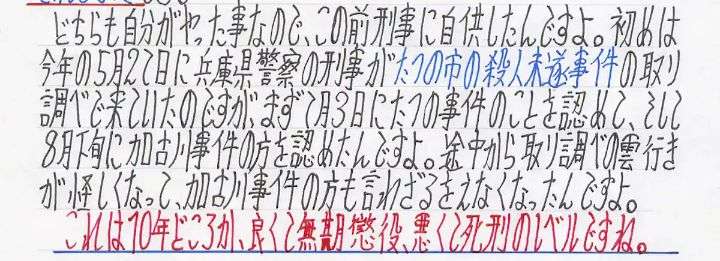 どちらも自分がやった事なので、この前刑事に自供したんですよ。初めは
今年の5月27日に兵庫県警察の刑事がたつの市の殺人未遂事件の取り
調べで来ていたのですが、まず7月3日にたつの事件のことを認めて、そして
8月下旬に加古川事件の方を認めたんですよ。途中から取り調べの雲行き
が怪しくなって、加古川事件の方も言わざるをえなくなったんですよ。
これは10年どころか、良くて無期懲役、悪くて死刑のレベルですね。